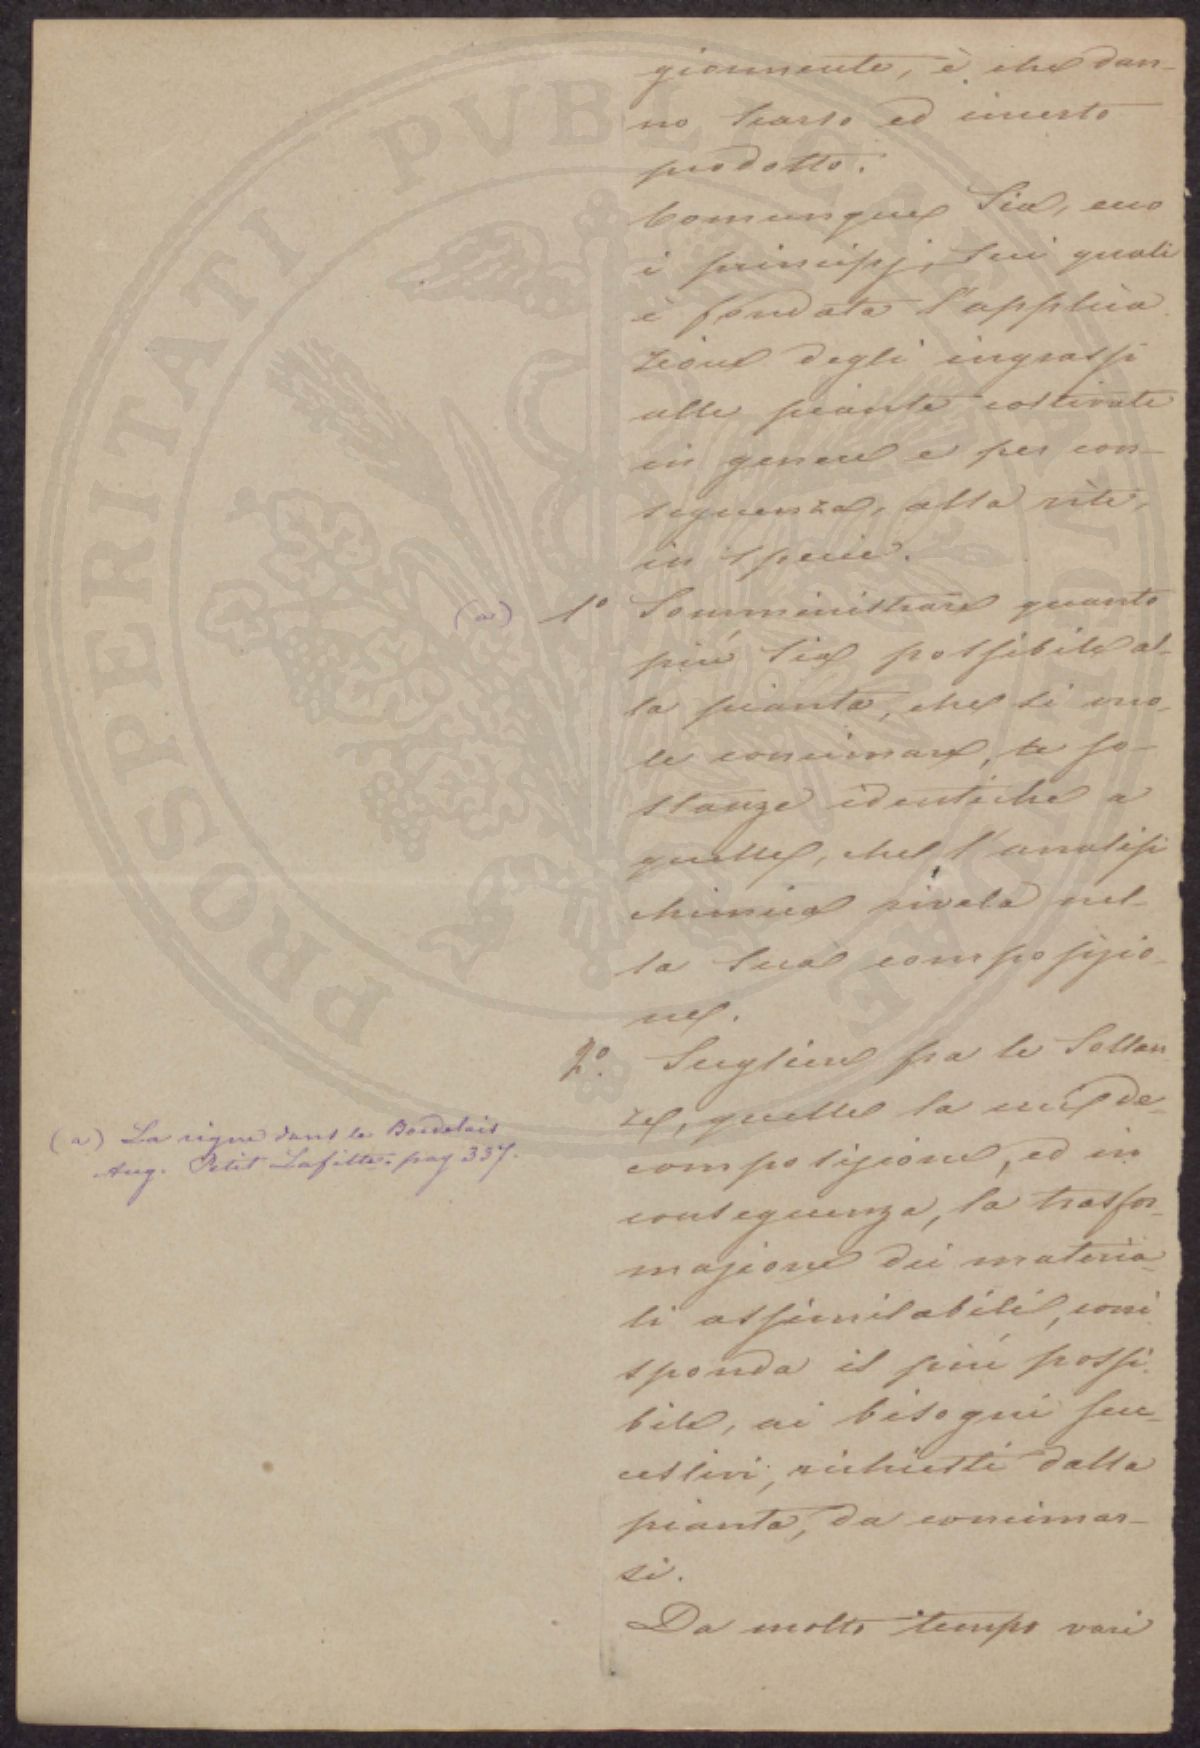 giormente, è che dan-
no scarso ed incerto
prodotto.
Comunque sia, ecco
i principj, sui quali
è fondata l'applica
zione degli ingrassi
alle piante coltivate
in genere e per con-
seguenza, alla vite,
in specie.
(a) 1º Somministrare quanto
più sia possibile al-
la pianta, che si vuo-
le concimare, le so-
stanze identiche a
quelle, che l'analisi
chimica rivela nel-
la sua composizio-
ne.
2º. Scegliere fra le sostan
ze, quelle la cui de-
composizione, ed in
conseguenza, la trasfor-
mazione dei materia-
li assimilabili, corri
sponda il più possi-
bile, ai bisogni suc-
cessivi, richiesti dalla
pianta, da concimar-
si.
Da molto tempo vari
(a) La vigne dans le Bordelais
Aug. Petit Lafitte. pag 337.
PROSPERITATI PVBLICAE AVGENDAE